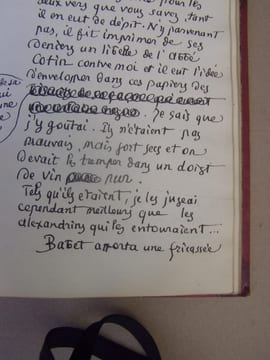 deux vers que vous savez, tant
il en eut de dépit. N'y parvenant
pas, il fit imprimer de ses
deniers un libelle de l'abbé
Cotin contre moi et il eut l'idée
d'envelopper dans ces papiers des
Je sais que
j'y goûtai. Ils n'étaient pas
mauvais, mais fort secs et on
devait les tremper dans un doigt
de vin pur.
Tels qu'ils étaient, je les jugeai
cependant meilleurs que les
alexandrins qui les entouraient...
Babet apporta une fricassée